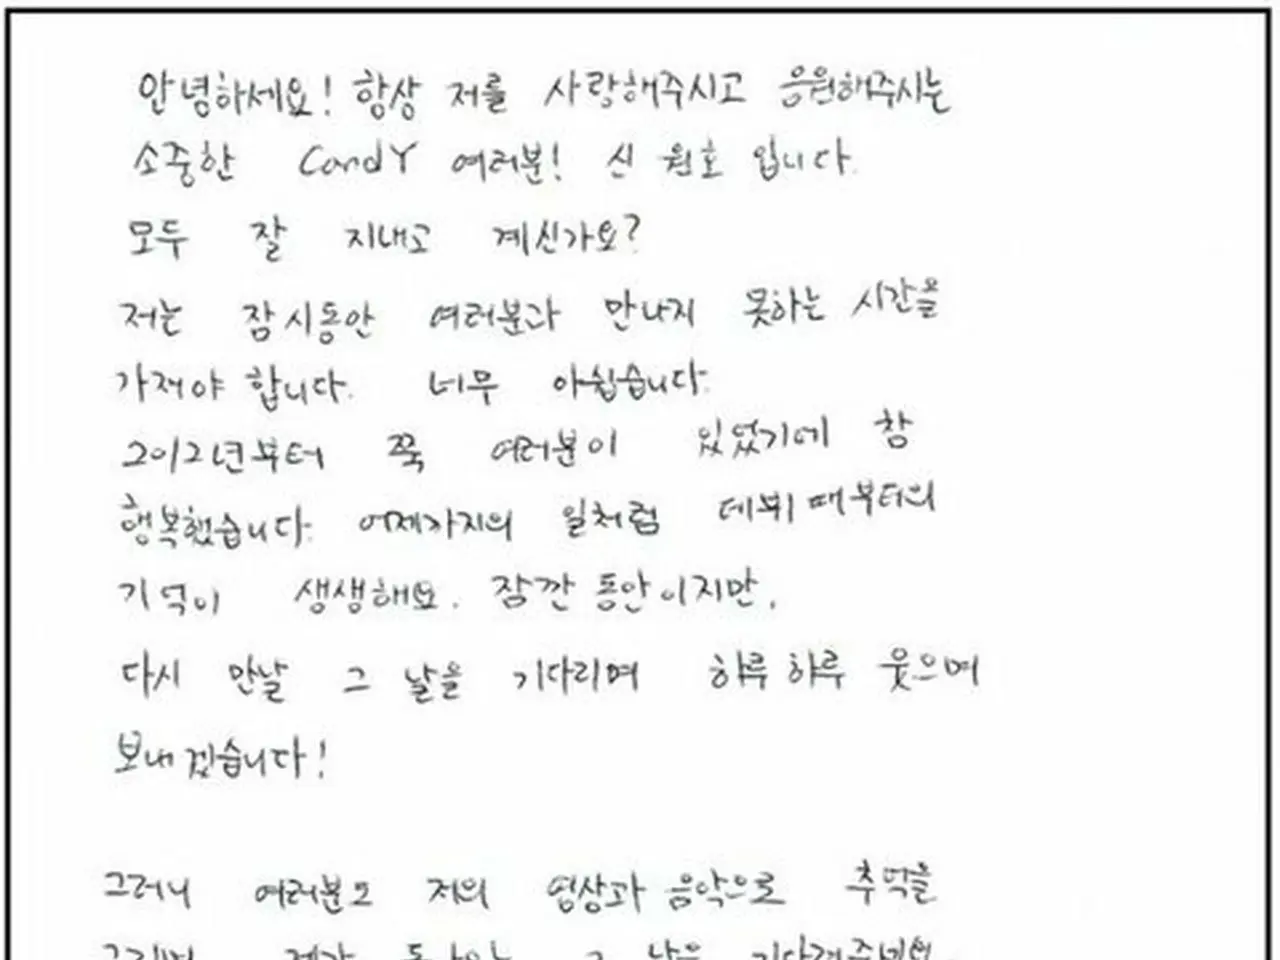 안녕하세요! 항상 저를 사랑해주시고 응원해주시는
소중한 CandY 여러분! 신 원호 입니다.
모두 잘 지내고 계신가요?
저는 잠시동안 여러분과 만나지 못하는 시간을
가져야 합니다. 너무 아쉽습니다.
2012년부터 쭉 여러분이 있었기에 참
행복했습니다. 어제까지의 일처럼 데뷔 때부터의
기억이 생생해요. 잠깐 동안이지만,
다시 만날 그 날을 기다리며 하루 하루 웃으며
보내겠습니다!
그러니 여러분도 저의 영상과 음악으로 추억을
그 날을